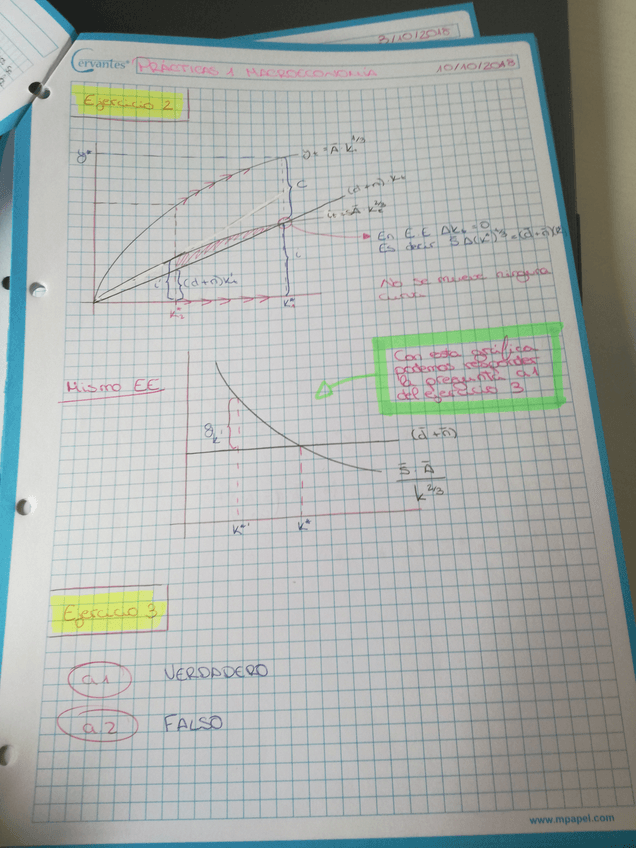 3/10/2018
Cervantes
PRÁCTICAS 1 MACROECONOMÍA
10/10/2018
Ejercicio 2
y*
C
(d+n) k
En E.E Δk = 0
Es decir
No se mueve ninguna
curva
i
(d+n)k
Mismo EE
Con esta gráfica
podemos responder
la pregunta a1
del ejercicio 3
(d̄ + n̄)
s̄ Ā
k^2/3
k*'
k*
Ejercicio 3
a1 VERDADERO
a2 FALSO
www.mpapel.com